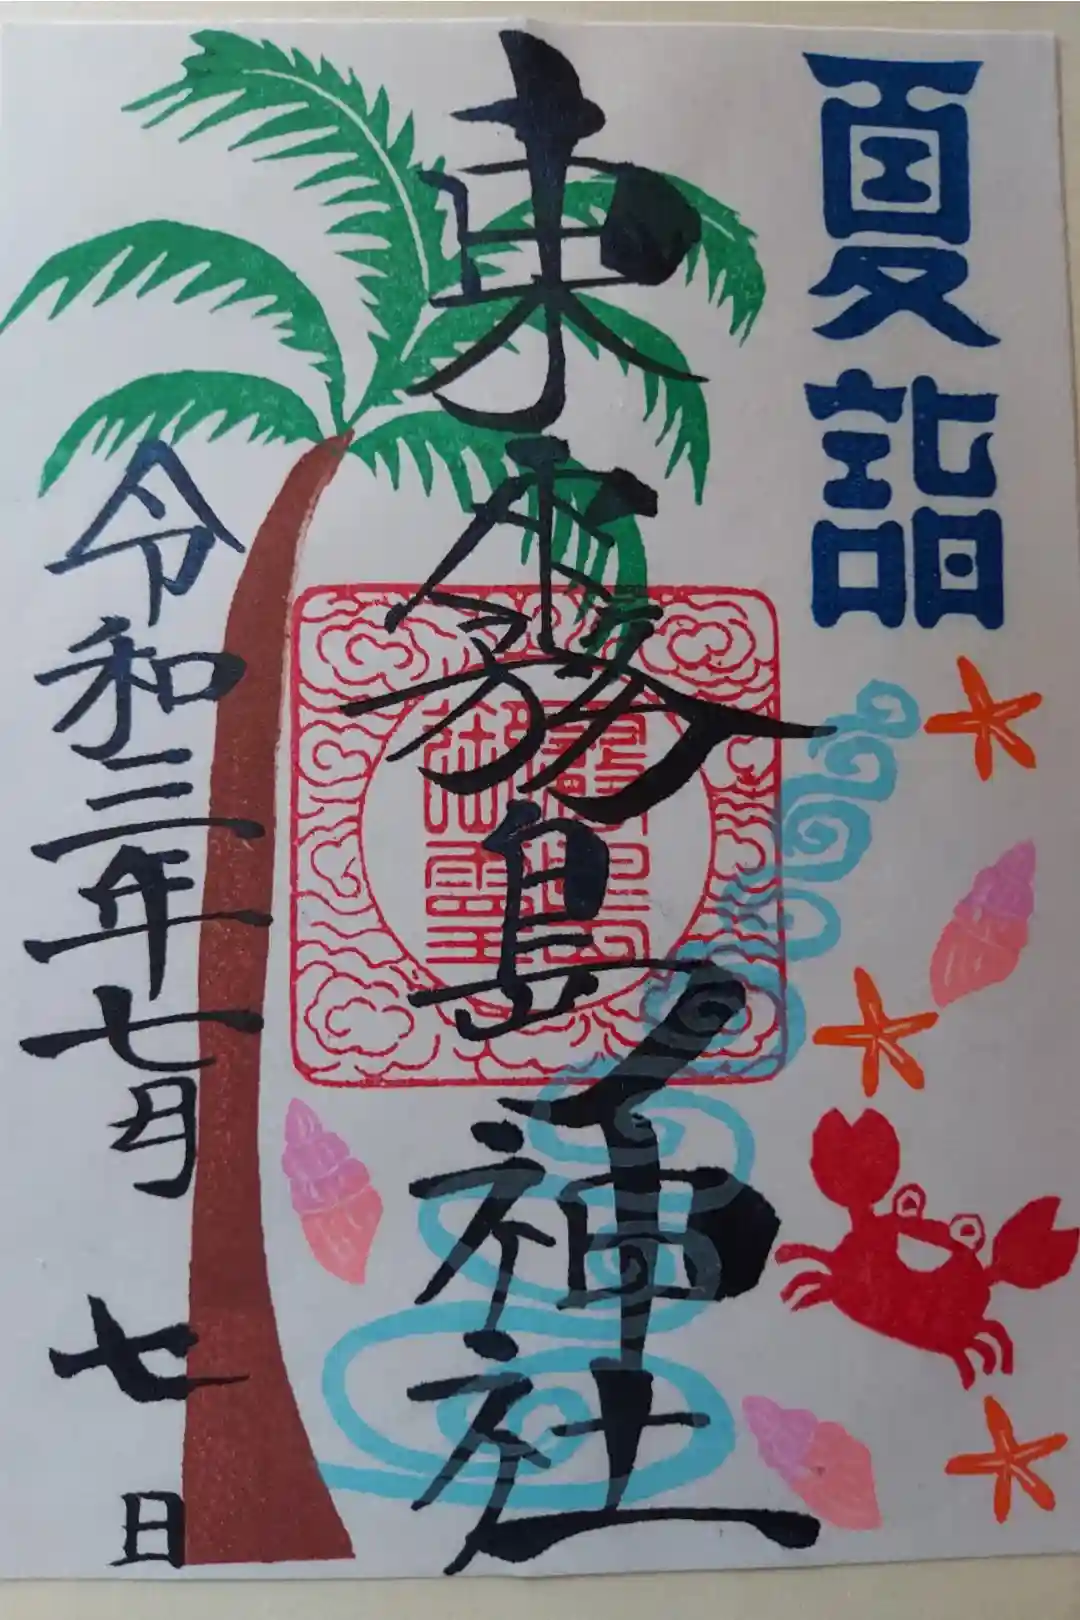 夏詣
東霧島神社
令和三年七月七日